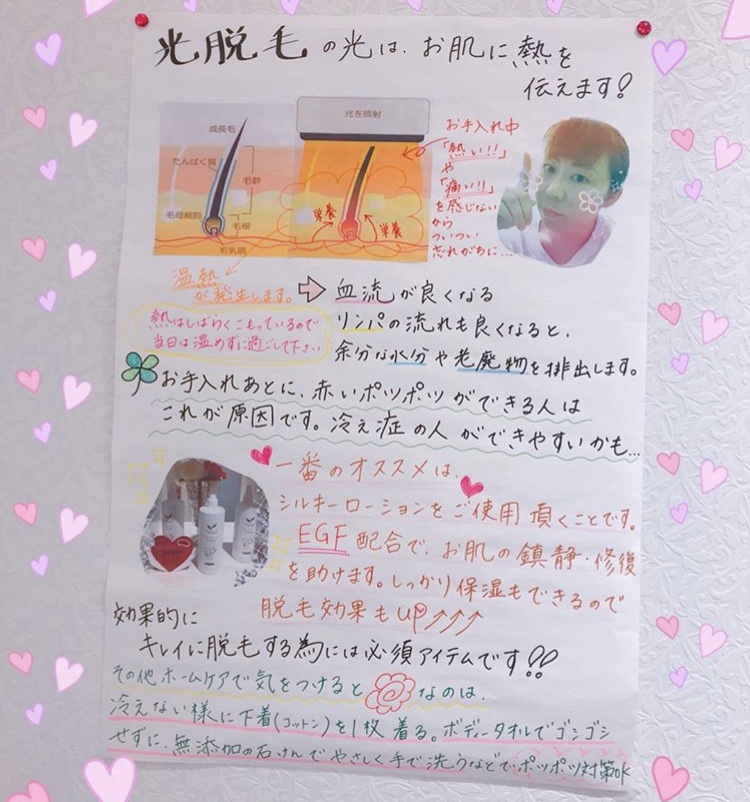 光脱毛の光は、お肌に熱を
伝えます!
成長毛
たんぱく質
毛幹
毛母細胞
毛根
毛乳頭
光を照射
栄養
栄養
お手入れ中
「熱い!!」
や
「痛い!!」
を感じない
から
ついつい
忘れがちに…
温熱
が発生します。
⇨ 血流が良くなる
リンパの流れも良くなると、
余分な水分や老廃物を排出します。
熱はしばらくこもっているので
当日は温めずに過ごして下さい
お手入れあとに、赤いポツポツができる人は
これが原因です。冷え症の人ができやすいかも…
一番のオススメは、
シルキーローションをご使用頂くことです。
EGF配合で、お肌の鎮静・修復
を助けます。しっかり保湿もできるので
脱毛効果もup↑↑↑
効果的に
キレイに脱毛する為には必須アイテムです!!
その他ホームケアで気をつけると良なのは、
冷えない様に下着(コットン)を1枚着る。ボディータオルでゴシゴシ
せずに、無添加の石けんでやさしく手で洗うなどでポツポツ対策OK